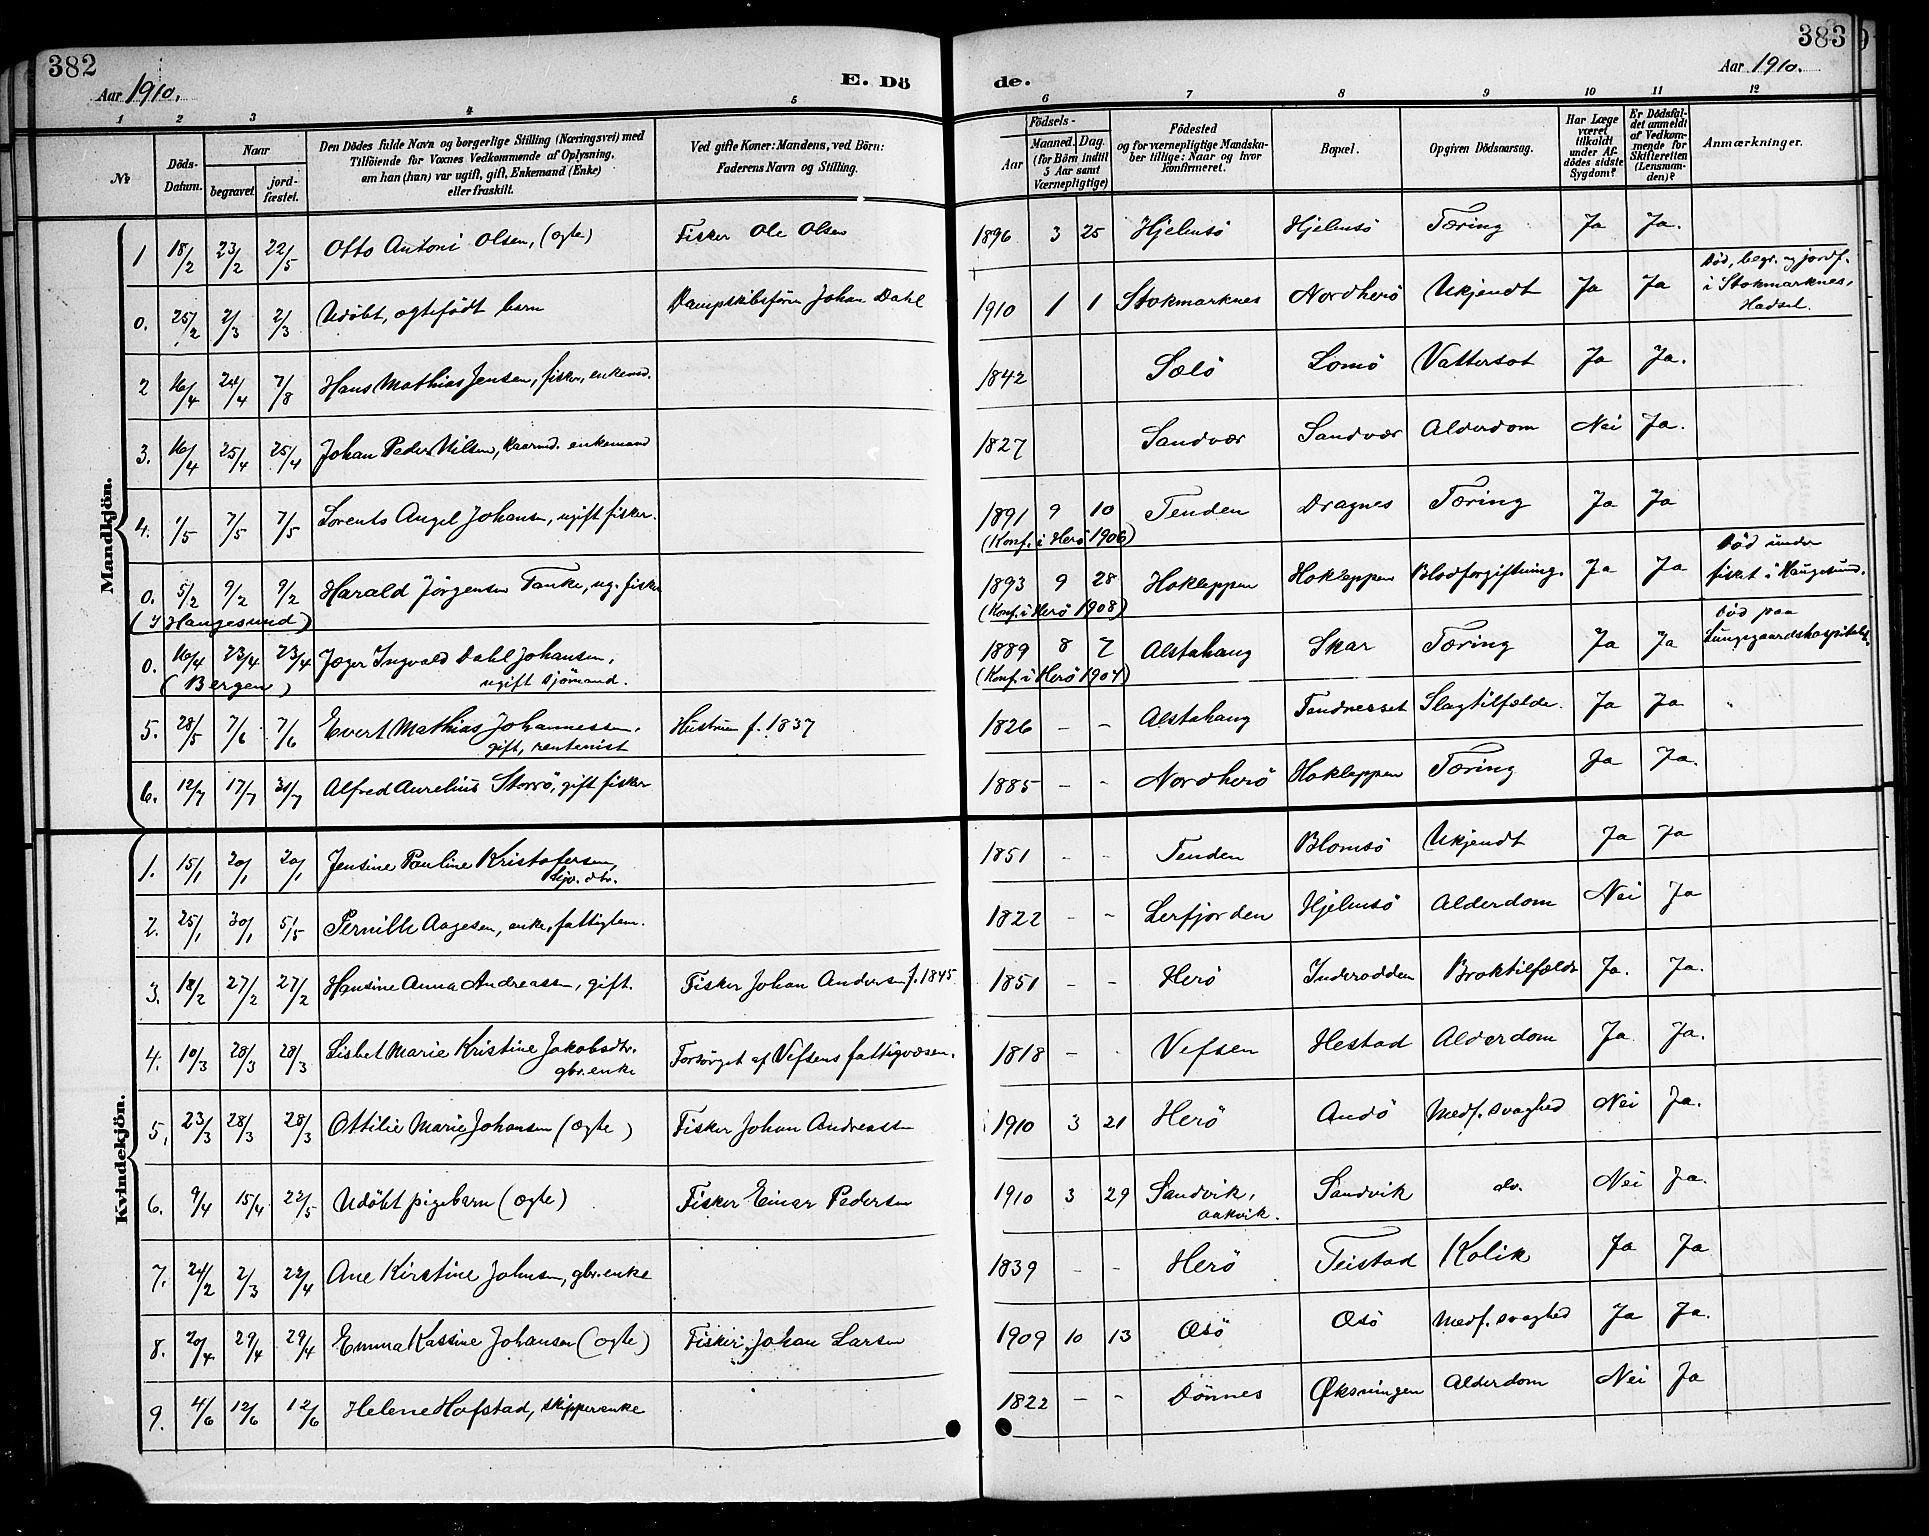 382
Aar 1910.
E. Dö
de.
Aar 1910.
383
1 2 3 4 5 6 7 8 9 10 11 12
№
Döds-Datum.
Naar
begravet.
jord-fæstet.
Den Dödes fulde Navn og borgerlige Stilling (Næringsvei) med
Tilföiende for Voxnes Vedkommende af Oplysning,
om han (hun) var ugift, gift, Enkemand (Enke)
eller fraskilt.
Ved gifte Koner: Mandens, ved Börn:
Faderens Navn og Stilling.
Födsels-
Aar
Maaned. Dag.
(for Börn indtil
5 Aar samt
Værnepligtige)
Födested
og for værnepligtige Mandska-
ber tillige: Naar og hvor
konfirmeret.
Bopæl.
Opgiven Dödsaarsag.
Har Læge
været
tilkaldt
under Af-
dödes sidste
Sygdom?
Er Dödsfal-
det anmeldt
af Vedkom-
mende for
Skifteretten
(Lensman-
den)?
Anmærkninger.
Mandkjön.
1 18/2 23/2 22/5 Otto Antoni Olsen, (ægte) Fisker Ole Olsen 1896 3 25 Hjelmsö Hjelmsö Tæring Ja Ja.
0. 25/2 2/3 2/3 Udöbt, ægtefödt barn Dampskibsförer Johan Dahl 1910 1 1 Stokmarknes Nordherö Ukjendt Ja Ja Död, begr. og jordf.
i Stokmarknes,
Hadsel.
2 16/4 24/4 7/8 Hans Mathias Jensen, fisker, enkemd. 1842 Sælö Lomö Vattersot Ja Ja.
3. 16/4 25/4 25/4 Johan Peder Nilsen, kaarmd. enkemand 1827 Sandvær Sandvær Alderdom Nei Ja.
4. 1/5 7/5 7/5 Lorents Angel Johansen, ugift fisker. 1891 9 10 Tenden Dragnes Tæring Ja Ja
(Konf. i Herö 1906)
0. 5/2 9/2 9/2 Harald Jörgensen Tanke, ug. fisker 1893 9 28 Hokleppen Hokleppen Blodforgiftning. Ja Ja Död under
fisket i Haugesund.
(I Haugesund) (Konf. i Herö 1908)
0. 16/4 23/4 23/4 Jæger Ingvald Dahl Johansen,
ugift sjömand. 1889 8 7 Alstahaug Skar Tæring Ja Ja Död paa
Lungegaardshospitalet
(Bergen) (Konf. i Herö 1904)
5. 28/5 7/6 7/6 Evert Mathias Johannessen,
gift, rentenist Hustrun f. 1837 1826 - - Alstahaug Tendnesset Slagtilfælde. Ja Ja
6. 12/7 17/7 31/7 Alfred Aurelius Storrö, gift fisker 1885 - - Nordherö Hokleppen Tæring Ja Ja.
Kvindekjön.
1. 15/1 20/1 20/1 Jensine Pauline Kristofersen, 1851 - - Tenden Blomsö Ukjendt Ja Ja
2. 25/1 30/1 5/5 Pernille Aagesen, enke, fattiglem. 1822 - - Lerfjorden Hjelmsö Alderdom Nei Ja
3. 18/2 27/2 27/2 Hansine Anna Andreassen, gift. Fisker Johan Andersen f. 1845 1851 - - Herö Inderodden Broktilfælde Ja. Ja.
4. 10/3 28/3 28/3 Lisbet Marie Kristine Jakobsdtr.
gbr. enke Forsörget af Vefsens fattigvæsen. 1818 - - Vefsen Hestad Alderdom Ja. Ja.
5, 23/3 28/3 28/3 Ottilie Marie Johansen (ægte) Fisker Johan Andreassen 1910 3 21 Herö Andö Medf. svaghed Nei Ja.
6. 9/4 15/4 22/5 Udöbt pigebarn (ægte) Fisker Einar Pedersen 1910 3 29 Sandvik,
Aakvik. Sandvik do. Nei Ja.
7. 24/2 2/3 22/4 Ane Kirstine Johnsen, gbr. enke 1839 - - Herö Teistad Kolik Ja Ja
8. 20/4 29/4 29/4 Emma Kassine Johansen (ægte) Fisker Johan Larsen 1909 10 13 Æsö Æsö Medf. svaghed Ja Ja.
9. 4/6 12/6 12/6 Helene Hofstad, skipperenke 1822 - - Dönnes Øksningen Alderdom Nei Ja